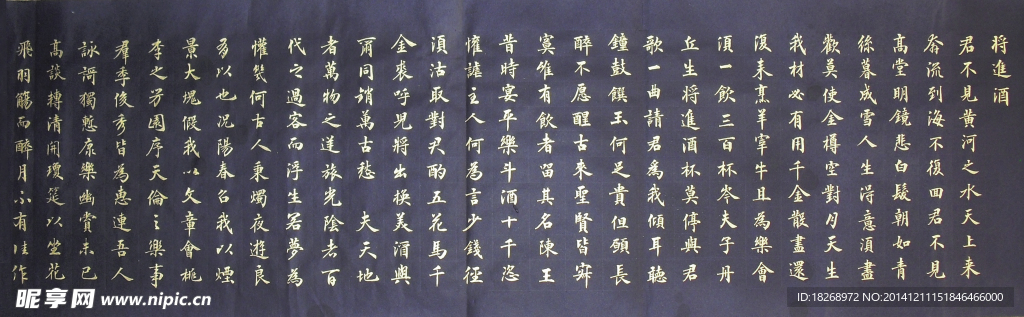 将進酒
君不見黄河之水天上来
奔流到海不復回君不見
高堂明鏡悲白髮朝如青
絲暮成雪人生得意須盡
歡莫使金樽空對月天生
我材必有用千金散盡還
復来烹羊宰牛且為樂會
須一飲三百杯岑夫子丹
丘生将進酒杯莫停與君
歌一曲請君為我傾耳聽
鐘鼓饌玉何足貴但願長
醉不愿醒古来聖賢皆寂
寞唯有飲者留其名陳王
昔時宴平樂斗酒十千恣
懽謔主人何為言少錢徑
須沽取對君酌五花馬千
金裘呼兒将出換美酒與
爾同銷萬古愁 夫天地
者萬物之逆旅光陰者百
代之過客而浮生若夢為
懽幾何古人秉燭夜遊良
有以也况陽春召我以煙
景大塊假我以文章會桃
李之芳園序天倫之樂事
羣季俊秀皆為惠連吾人
詠謌獨慙康樂幽賞未已
高談轉清開瓊筵以坐花
飛羽觴而醉月不有佳作
昵享网 www.nipic.cn
ID:18268972 NO:20141211151846466000